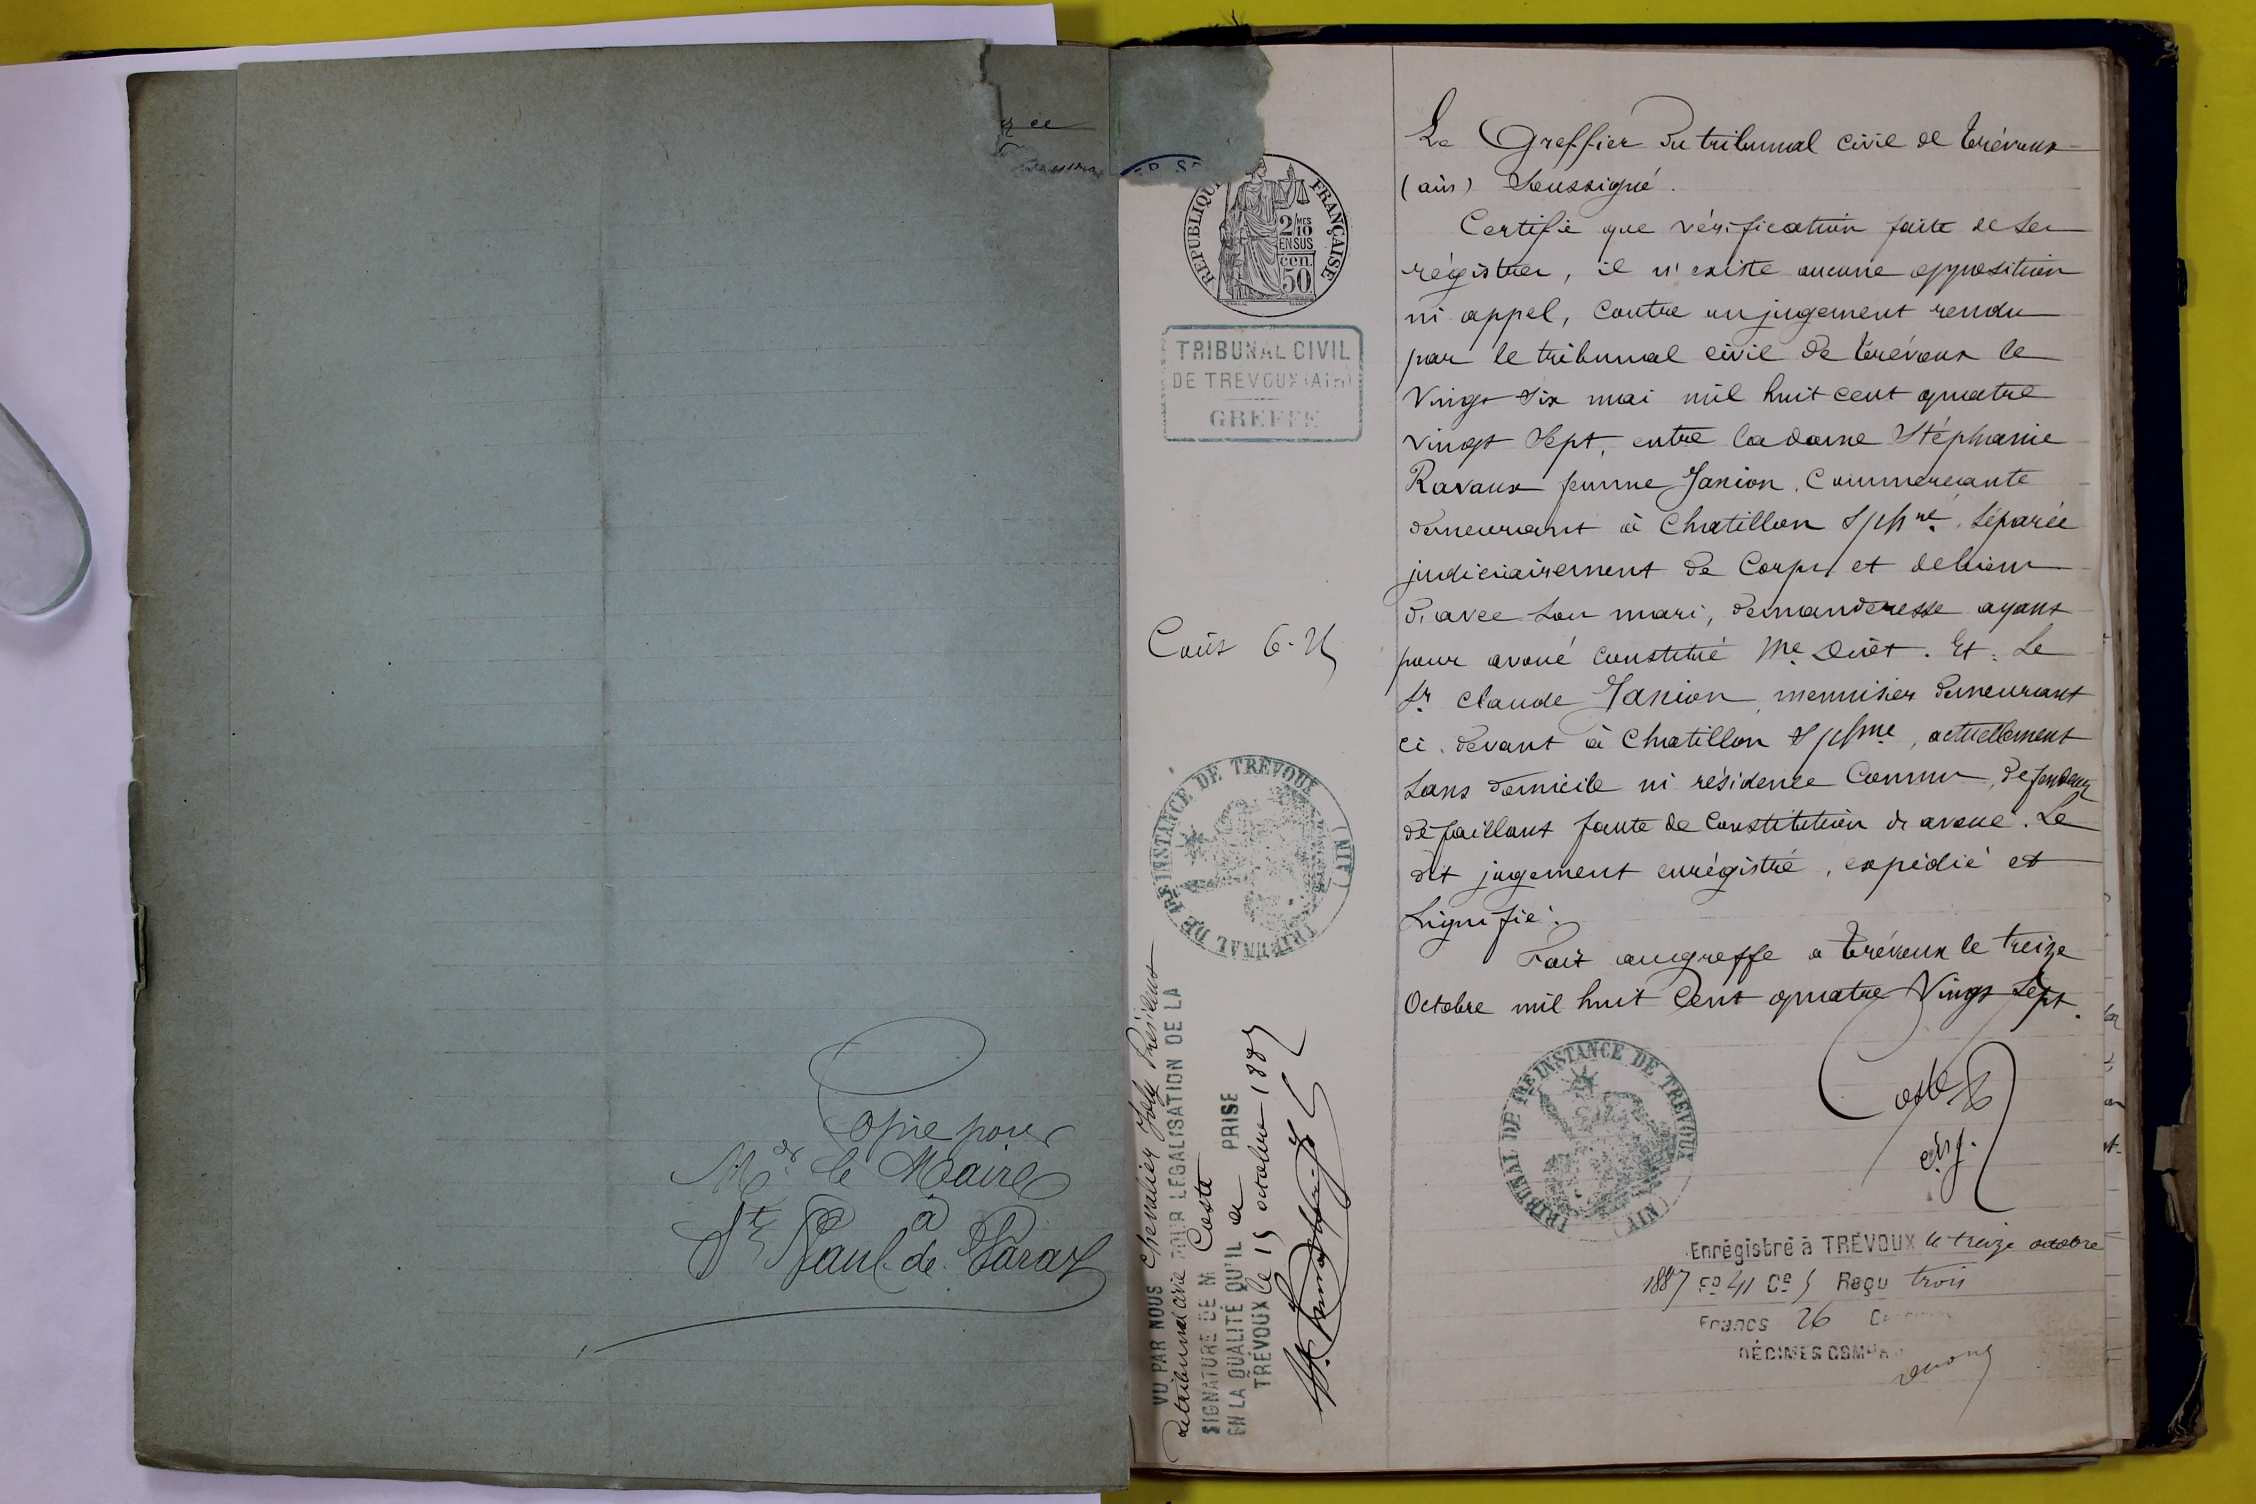 Copie pour
Mr le Maire
à
St Paul de Varax
RÉPUBLIQUE FRANÇAISE
2/10 MES
EN SUS
50 cen.
TRIBUNAL CIVIL
DE TREVOUX (AIN)
GREFFE
Coût 6-25
TRIBUNAL DE 1RE INSTANCE DE TREVOUX (AIN)
VU PAR NOUS Chevalier Joly Président
du tribunal civil POUR LEGALISATION DE LA
SIGNATURE DE M Coste
EN LA QUALITÉ QU'IL a PRISE
TRÉVOUX le 15 octobre 1887
Le Greffier du tribunal civil de Trévoux
(ain) Soussigné.
Certifie que vérification faite de ses
régistres, il n'existe aucune opposition
ni appel, contre un jugement rendu
par le tribunal civil de Trévoux le
Vingt six mai mil huit cent quatre
vingt sept, entre la dame Stéphanie
Ravaux femme Janion, Commercante
demeurant à Chatillon s/Chne, séparée
judiciairement de Corps et de biens
d'avec son mari, demanderesse ayant
pour avoué constitué Me Duêt. Et : Le
Sr Claude Janion, menuisier demeurant
ci-devant à Chatillon s/Chne, actuellement
sans domicile ni résidence Connus, défendeur
défaillant faute de Constitution d'avoué. Le
dit jugement enrégistré, expédié et
signifié.
Fait au greffe a Trévoux le treize
Octobre mil huit Cent quatre Vingt Sept.
Coste
TRIBUNAL DE 1RE INSTANCE DE TREVOUX (AIN)
Enrégistré à TRÉVOUX le treize octobre
1887 Fo 41 Ce 5 Reçu trois
Francs 26
DÉCIMES COMPRIS